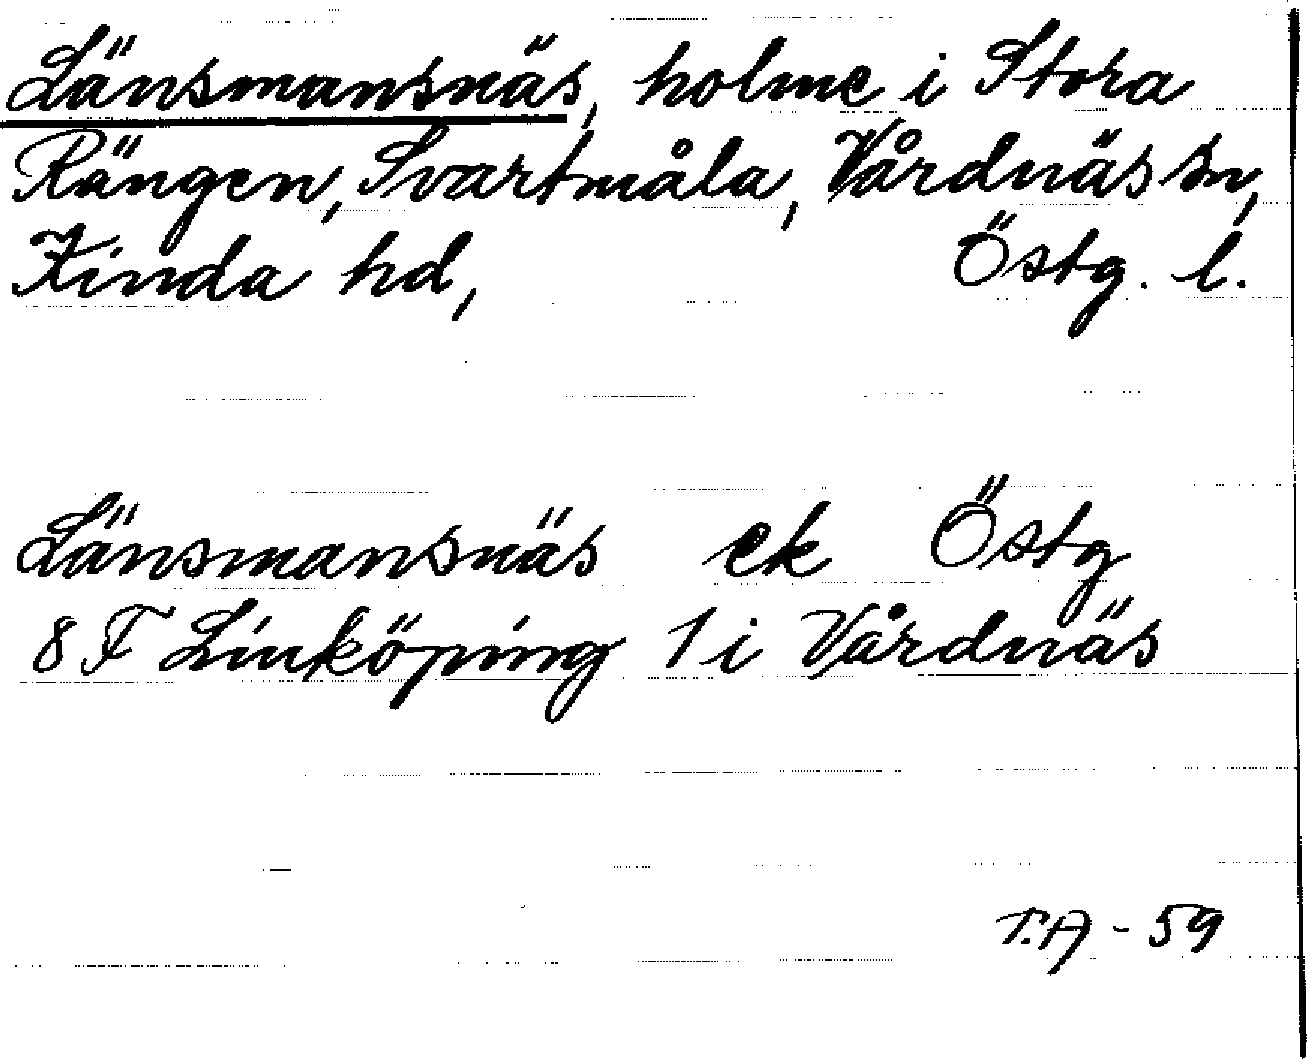 Länsmansnäs, holme i Stora
Rängen, Svartmåla, Vårdnäs sn,
Kinda hd, Östg. l.
Länsmansnäs ek Östg
8 F Linköping 1 i Vårdnäs
T.A - 59